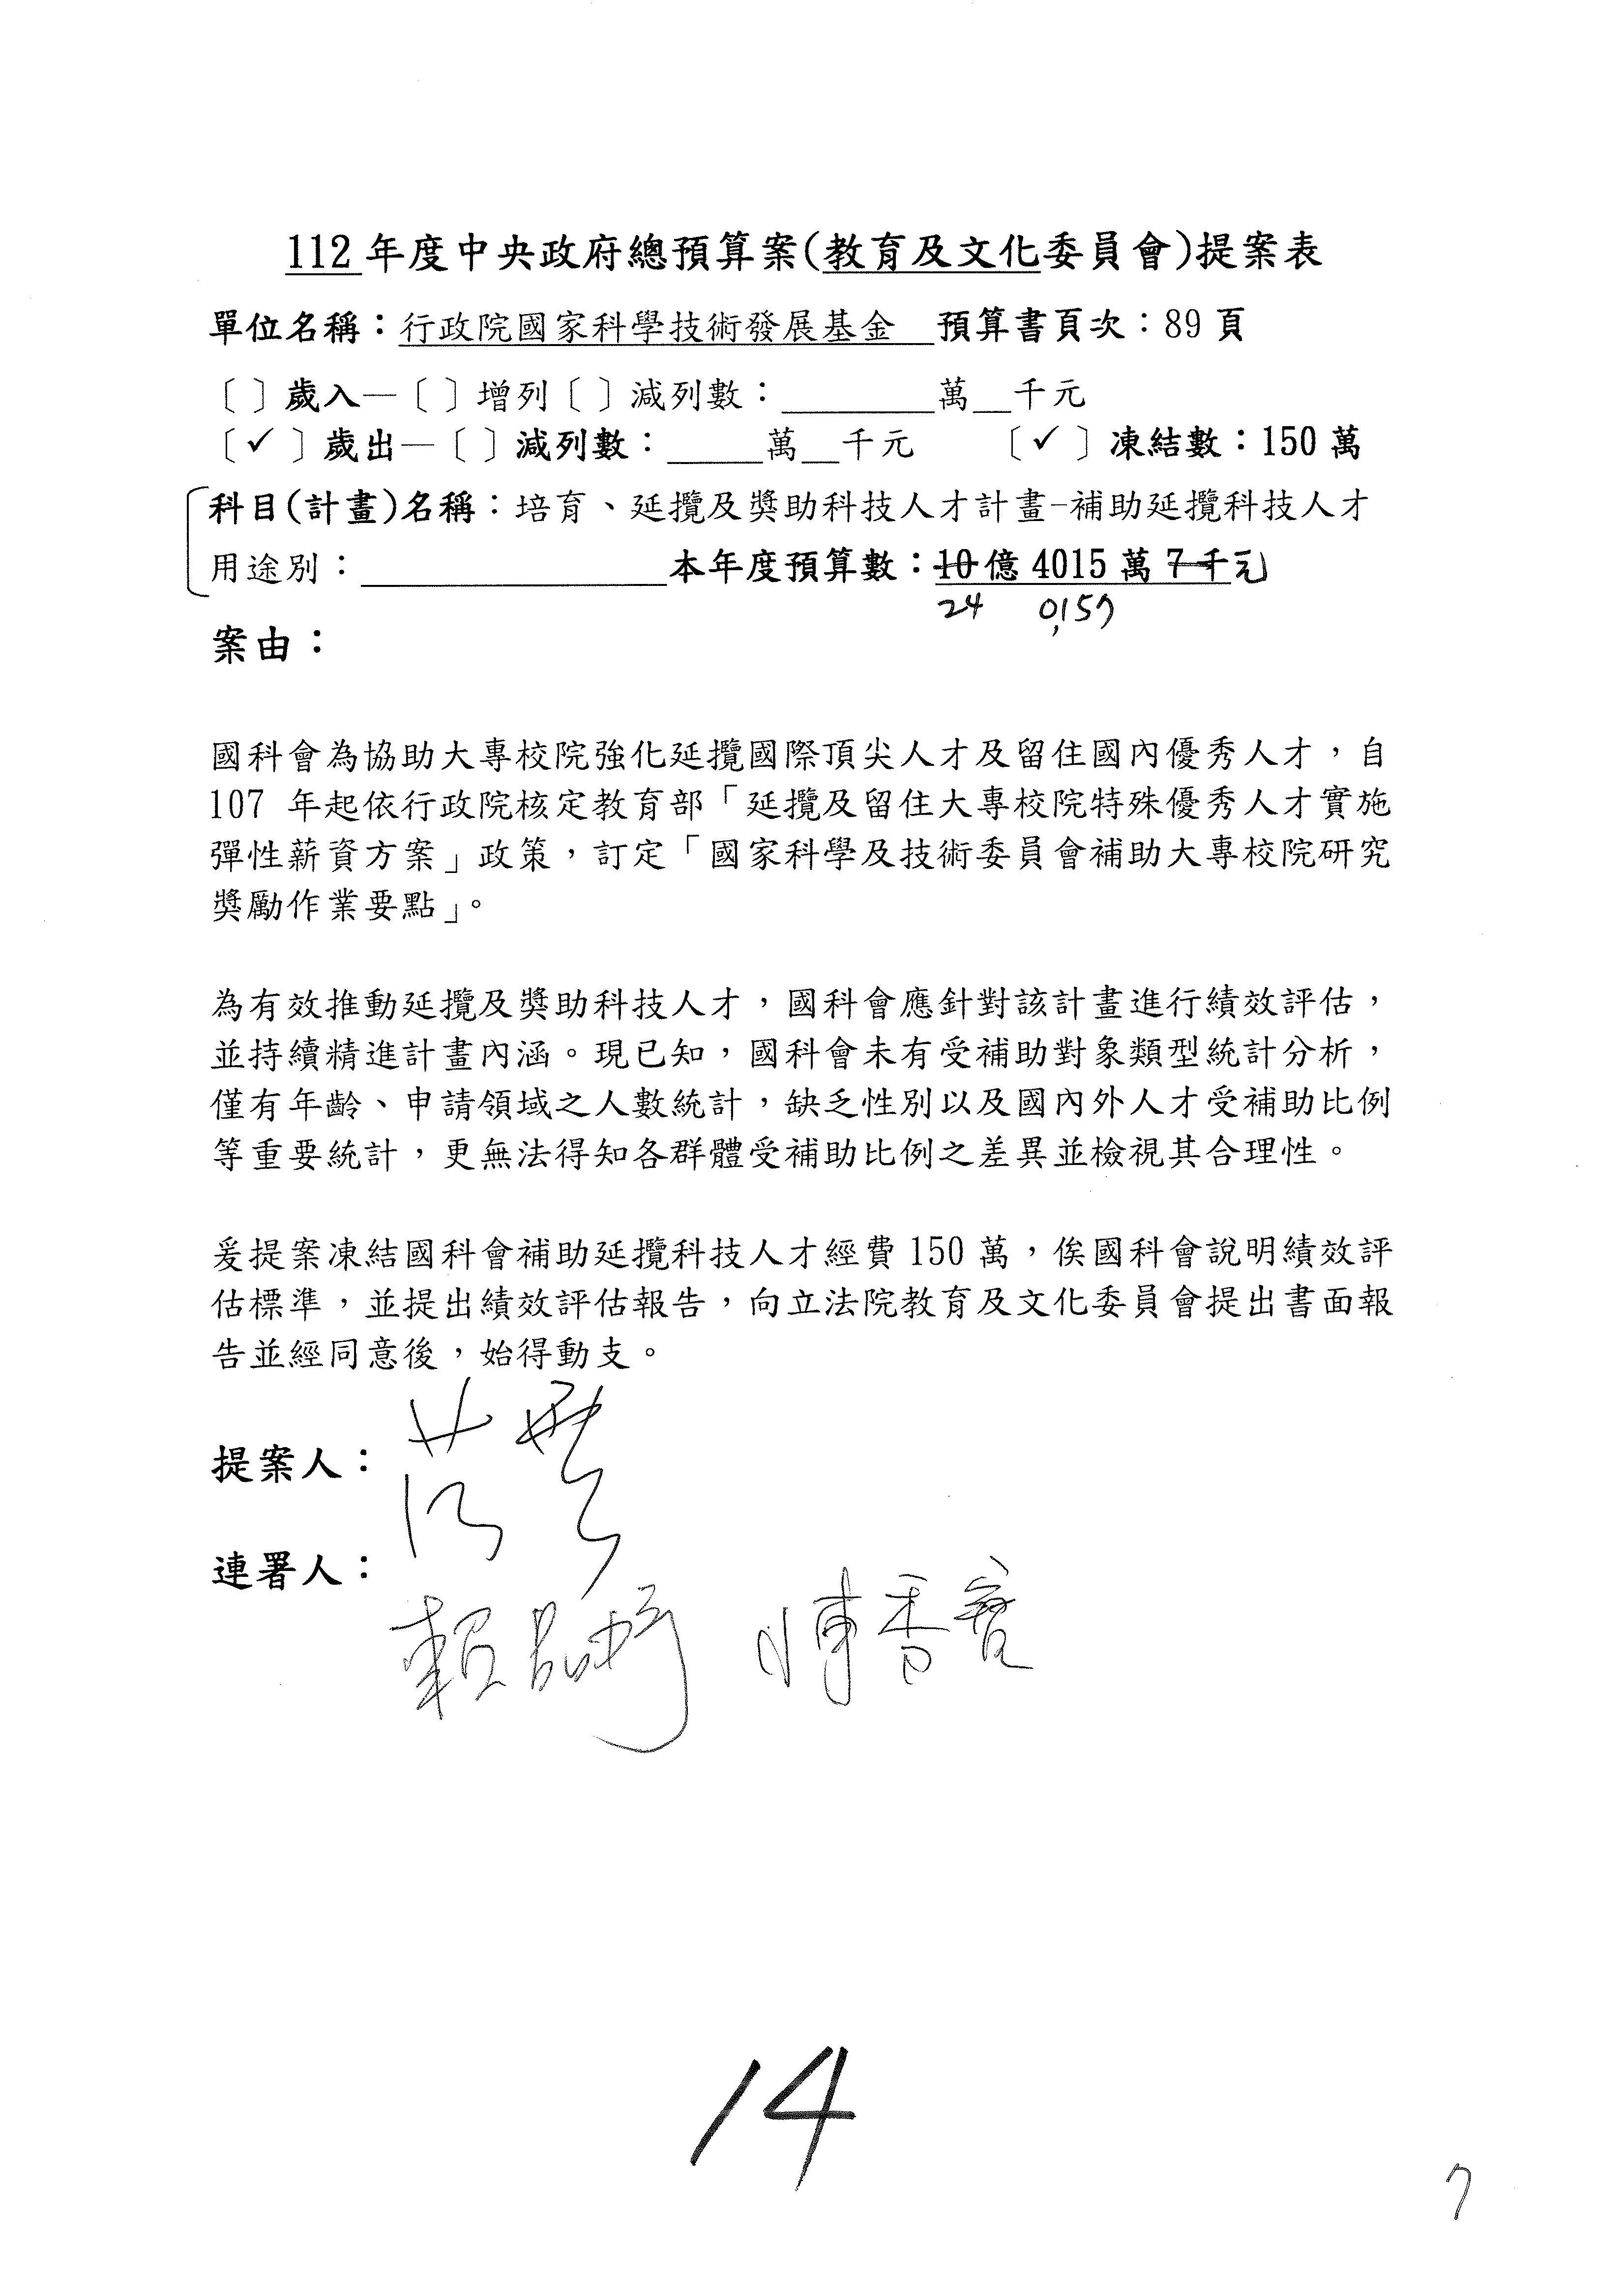 112 年度中央政府總預算案(教育及文化委員會)提案表
單位名稱：行政院國家科學技術發展基金 預算書頁次：89 頁
〔 〕歲入—〔 〕增列〔 〕減列數：________萬__千元
〔✓〕歲出—〔 〕減列數：_____萬__千元 〔✓〕凍結數：150 萬
科目(計畫)名稱：培育、延攬及獎助科技人才計畫-補助延攬科技人才
用途別：________________本年度預算數：10 億 4015 萬 7 千元
24 0,157
案由：
國科會為協助大專校院強化延攬國際頂尖人才及留住國內優秀人才，自
107 年起依行政院核定教育部「延攬及留住大專校院特殊優秀人才實施
彈性薪資方案」政策，訂定「國家科學及技術委員會補助大專校院研究
獎勵作業要點」。
為有效推動延攬及獎助科技人才，國科會應針對該計畫進行績效評估，
並持續精進計畫內涵。現已知，國科會未有受補助對象類型統計分析，
僅有年齡、申請領域之人數統計，缺乏性別以及國內外人才受補助比例
等重要統計，更無法得知各群體受補助比例之差異並檢視其合理性。
爰提案凍結國科會補助延攬科技人才經費 150 萬，俟國科會說明績效評
估標準，並提出績效評估報告，向立法院教育及文化委員會提出書面報
告並經同意後，始得動支。
提案人：
連署人：
賴品妤 陳秀寳
14
7